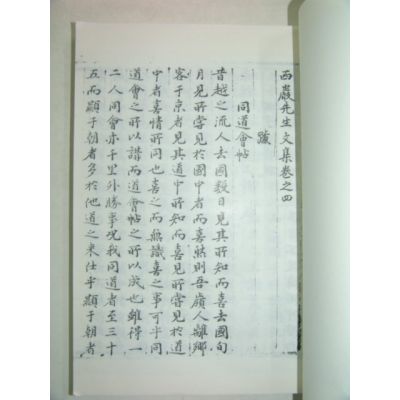 西巖先生文集卷之四
跋
同道會帖
昔越之流人去國數日見其所知而喜去國旬
月見所嘗見於國中者而喜然則吾嶺人離鄉
客于京者見其道中所知而喜見所嘗見於道
中者喜情所同也喜之而無識喜之事可乎同
道會之所以諧而道會帖之所以成也雖得一
二人同會亦千里外勝事況我同道者至三十
五而顯于朝者多於他道之來仕乎顯于朝者